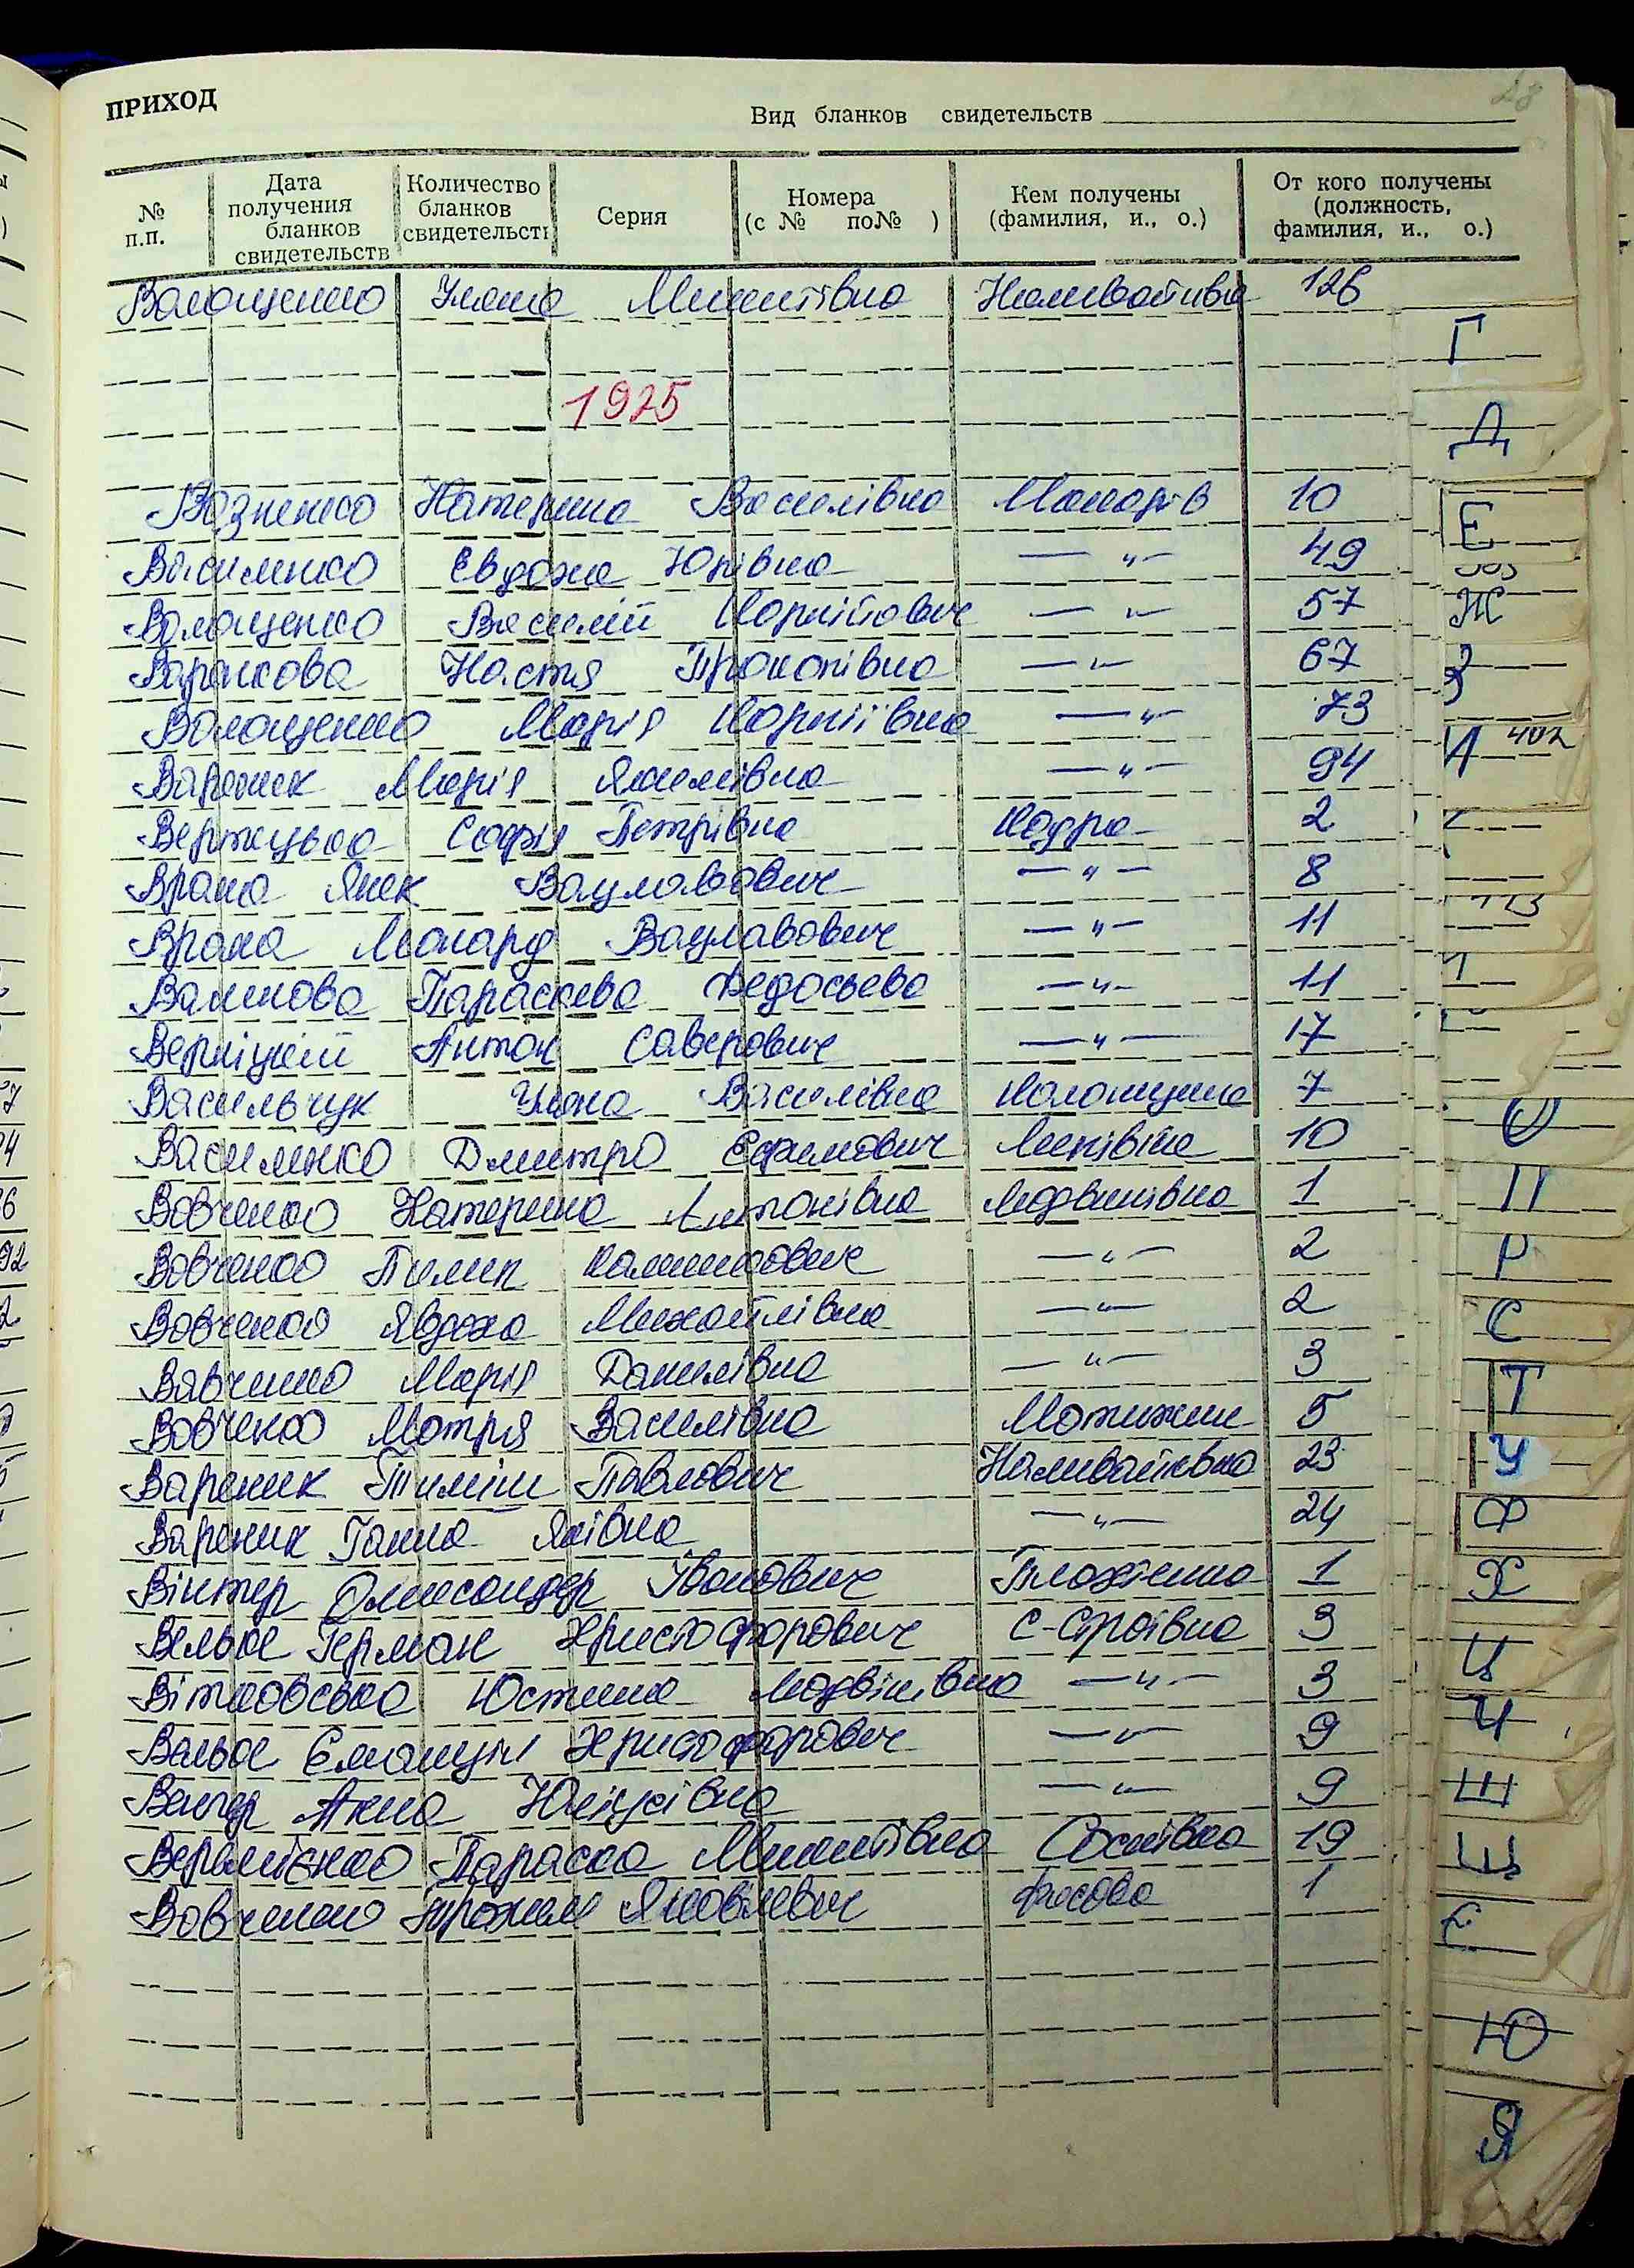 28
ПРИХОД
Вид бланков свидетельств
№ п.п. Дата получения бланков свидетельств Количество бланков свидетельств Серия Номера (с № по № ) Кем получены (фамилия, и., о.) От кого получены (должность, фамилия, и., о.)
Волощенко Уляна Микитівна Наливайківка 126
1925
Возненко Катерина Василівна Макарів 10
Василенко Евдокія Юрівна — " — 49
Волощенко Василій Корнійович — " — 57
Вараксова Настя Прокопівна — " — 67
Волощенко Марія Корніївна — " — 73
Вареник Марія Якимівна — " — 94
Софія Петрівна Кодра 2
Врана Янек Вацлавович — " — 8
Врана Леонард Вацлавович — " — 11
Валинова Параскева Федосьева — " — 11
Верніцкий Антон Саверович — " — 17
Васильчук Уляна Василівна Колонщина 7
Василенко Дмитро Ефимович Липівка 10
Вовченко Катерина Антонівна Людвинівка 1
Вовченко Пилип — " — 2
Вовченко Явдоха Михайлівна — " — 2
Вовченко Марія Данилівна — " — 3
Вовченко Мотря Василівна Мотижин 5
Вареник Тиміш Павлович Наливайківка 23
Вареник Ганна Яківна — " — 24
Вінтер Олександер Іванович 1
Вельке Герман Христофорович С-Строівка 3
Вітковська Юстина Людвіківна — " — 3
Вельке Христофорович — " — 9
Анна — " — 9
Веремієнко Параска Микитівна Соснівка 19
Вовченко Яковлевич Фасова 1
Г
Д
Е
Ж
З
И 402
О
П
Р
С
Т
У
Ф
Х
Ц
Ч
Ш
Щ
Є
Ю
Я